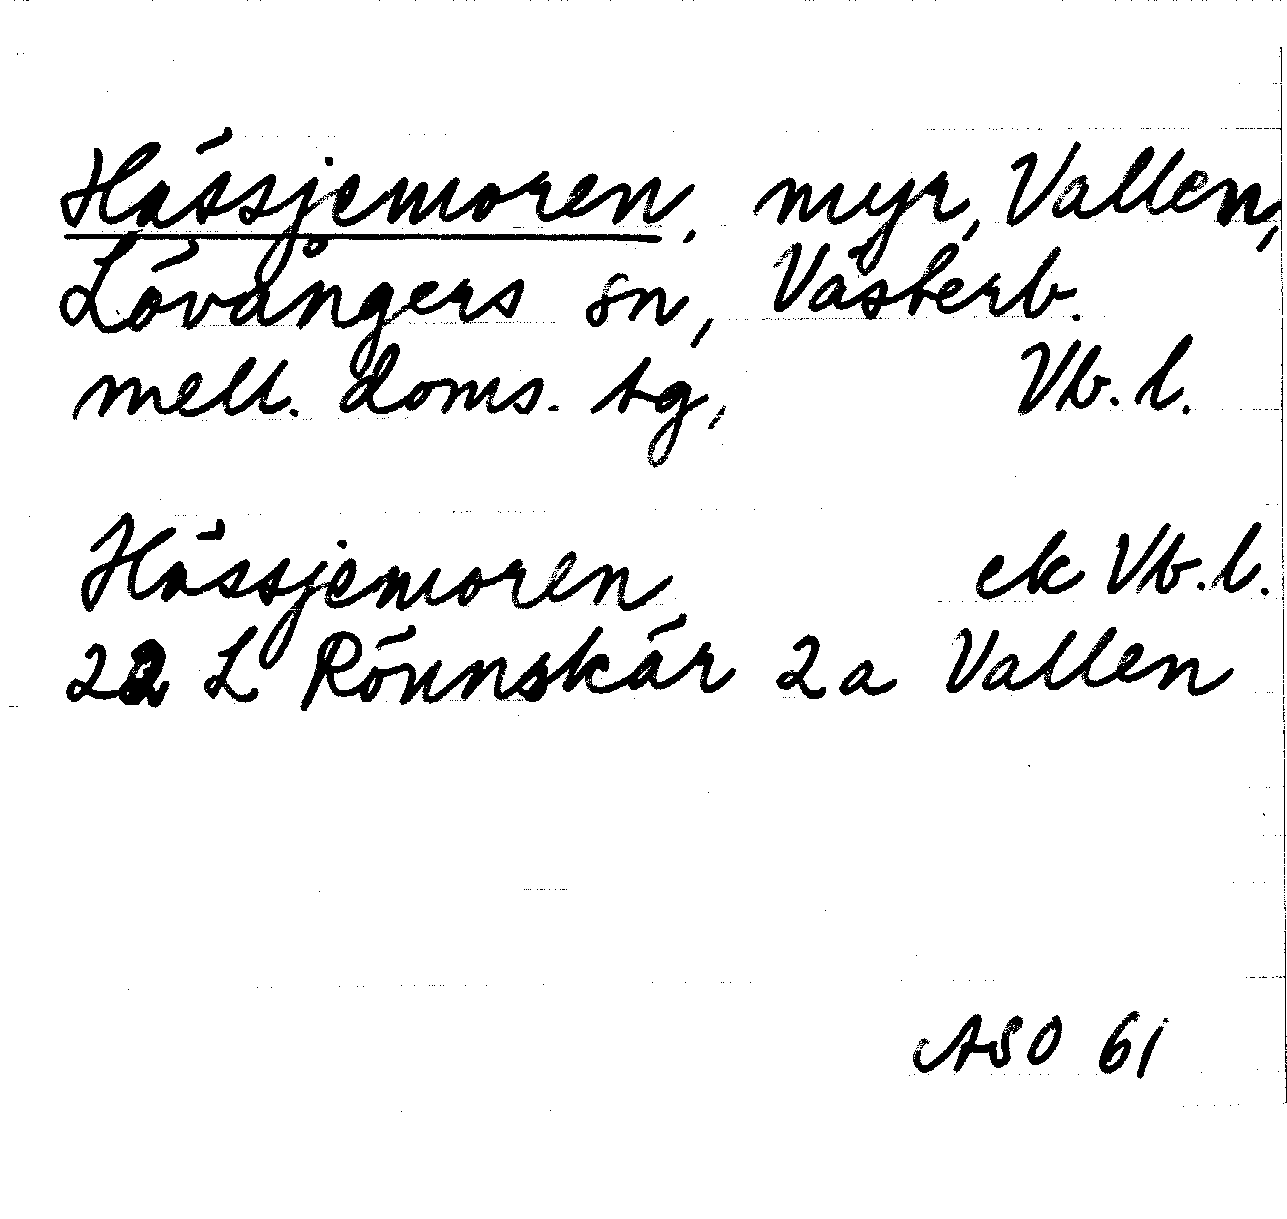 Hässjemoren, myr, Vallen,
Lövångers sn, Västerb.
mell. doms. tg, Vb. l.
Hässjemoren ek Vb. l.
22 L Rönnskär 2a Vallen
ASO 61